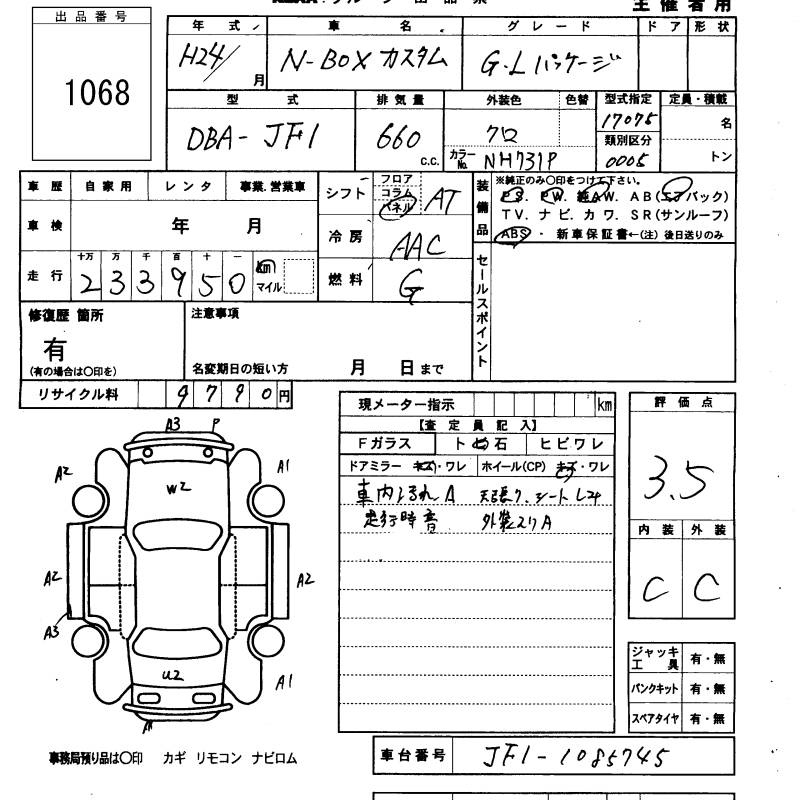 主催者用
出品番号
1068
年式 車名 グレード ドア 形状
H24/ 月 N-BOX カスタム G・Lパッケージ
型式 排気量 外装色 色替 型式指定 定員・積載
DBA-JF1 660 c.c. クロ 17075 名
カラーNo. NH731P 類別区分 0005 トン
車歴 自家用 レンタ 事業.営業車
車検 年 月
走行 十万 万 千 百 十 一
233950 km マイル
シフト フロア コラム パネル AT
冷房 AAC
燃料 G
装備品
※純正のみ〇印をつけて下さい。
PS. PW. 純AW. AB(エアバック)
TV. ナビ. カワ. SR(サンルーフ)
ABS ・ 新車保証書←(注)後日送りのみ
セールスポイント
修復歴 箇所
有
(有の場合は〇印を)
注意事項
名変期日の短い方 月 日まで
リサイクル料 9790円
現メーター指示 km
【査定員記入】
Fガラス ト.石 ヒビワレ
ドアミラー キズ・ワレ ホイール(CP) キズ・ワレ
車内汚れA 天張り、シート
走行時音 外装スリA
評価点
3.5
内装 外装
C C
ジャッキ工具 有・無
パンクキット 有・無
スペアタイヤ 有・無
A3 P
A2 A1
W2
A2 A2
A3
U2
A1
事務局預り品は〇印 カギ リモコン ナビロム
車台番号 JF1-1085745